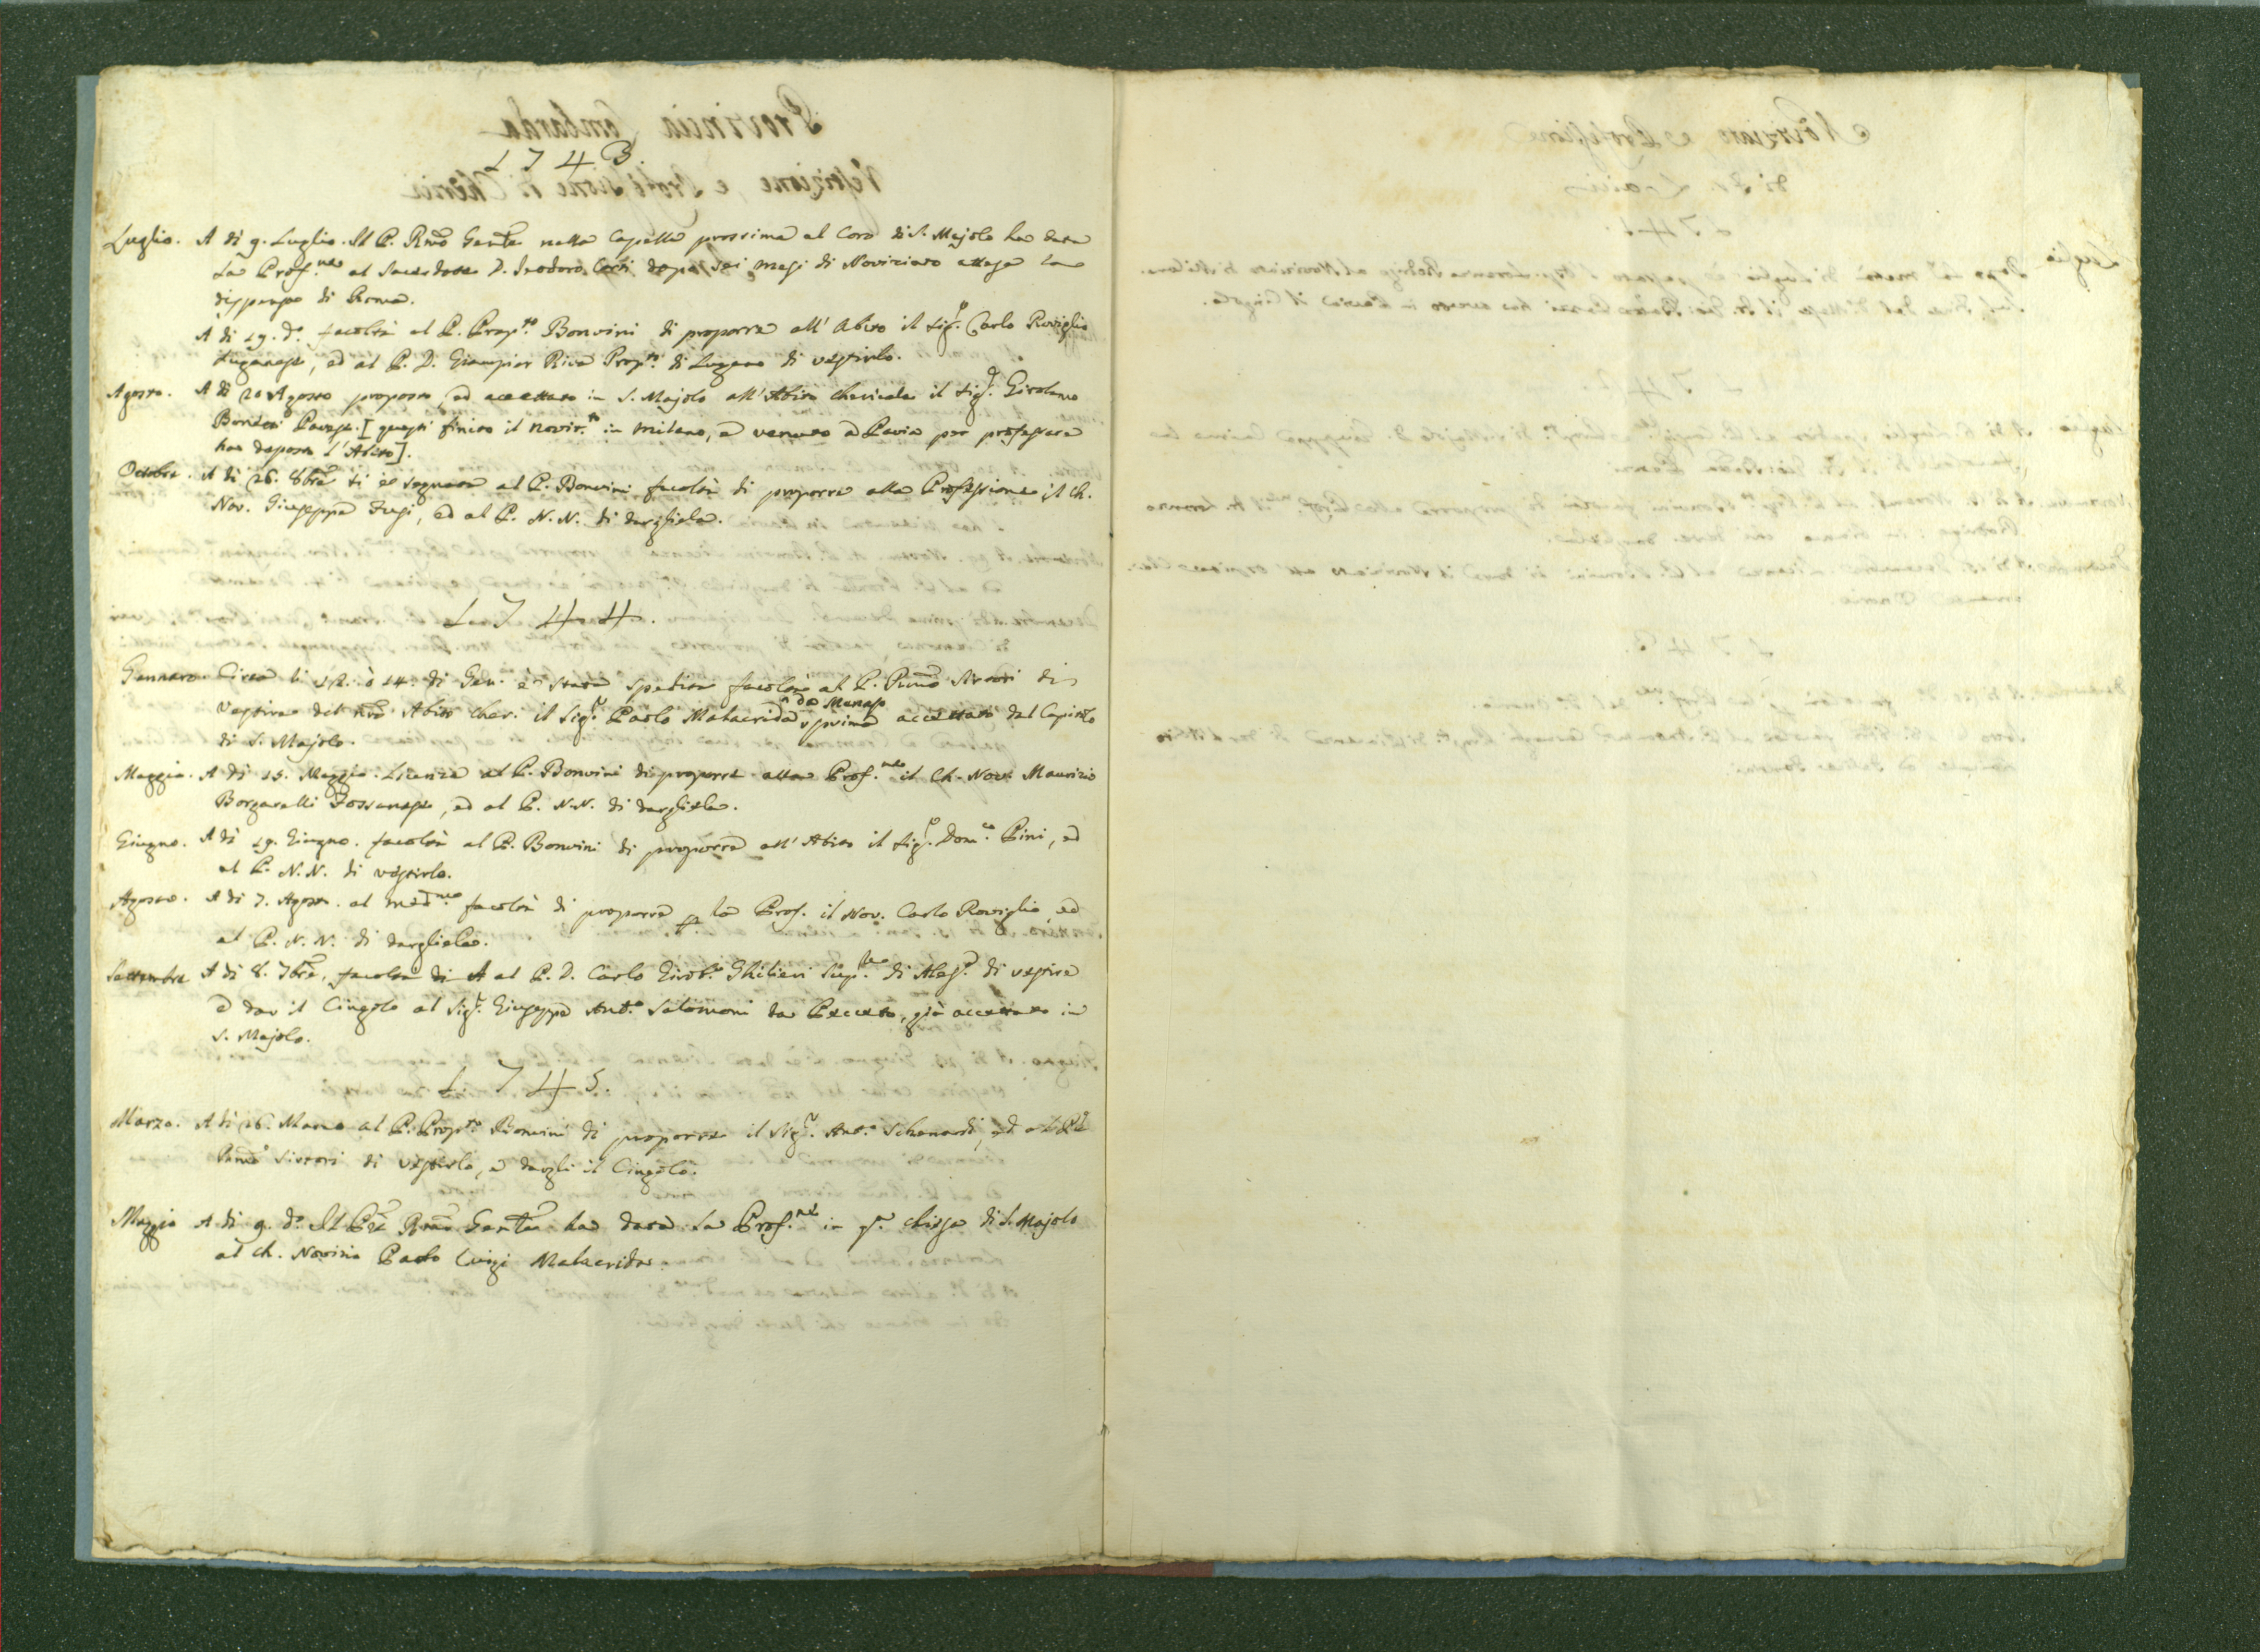 1743.
Luglio. A dì 9. Luglio. Il P. Rmo Gentle nella Capella prossima al Coro di S. Majolo ha data
la Prof.ne al Sacerdote D. Teodoro Corti dopo sei mesi di Noviziato attesa la
dispensa di Roma.
A dì 19. do. facoltà al P. Prop.to Bonvini di proporre all' Abito il Sigr. Carlo Roviglio
Luganese, ed al P. D. Giampier Riva Prop.to di Lugano di vestirlo.
Agosto. A dì 20 Agosto proposto, ed accettato in S. Majolo all' Abito chericale il Sigr. Girolamo
Pavese. [questi finito il noviz.to in Milano, e venuto a Pavia per professare
ha deposto l'Abito].
Octobre. A dì 26. 8bre si è segnata al P. Bonvini facoltà di proporre alla Professione il Ch.
Nov. Giuseppe, ed al P. N. N. di dargliela.
1744.
Gennaro. Circa li 12. ò 14. di Gen. è stata spedita facoltà al P. Rmo Sirtori di
vestire del nro Abito cher. il Sigr. Paolo Malacrida da Menaso prima accettato dal Capitolo
di S. Majolo.
Maggio. A dì 15. Maggio. Licenza al P. Bonvini di proporre alla Prof.ne il Ch. Nov. Maurizio
Borgarelli Fossanese, ed al P. N. N. di dargliela.
Giugno. A dì 19. Giugno. facoltà al P. Bonvini di proporre all' Abito il Sigr. Dom.co Pini, ed
al P. N. N. di vestirlo.
Agosto. A dì 7. Agosto. al med.mo facoltà di proporre p la Prof. il Nov. Carlo Roviglio, ed
al P. N. N. di dargliela.
Settembre A dì 8. 7bre. facoltà di A al P. D. Carlo Girol.o Ghilieri Sup.re di Ales.a di vestire
e dar il Cingolo al Sigr. Giuseppe Ant.o Salomoni da, già accettato in
S. Majolo.
1745.
Marzo. A dì 26. Marzo al P. Prop.to Bonvini di proporre il Sigr. Ant.o Schenardi, ed al P.
Rmo Sirtori di vestirlo, e dargli il Cingolo.
Maggio A dì 9. do. Il Pre Rmo Gentle ha data la Prof.ne in qta. chiesa di S. Majolo
al Ch. Novizio Paolo Luigi Malacrida.